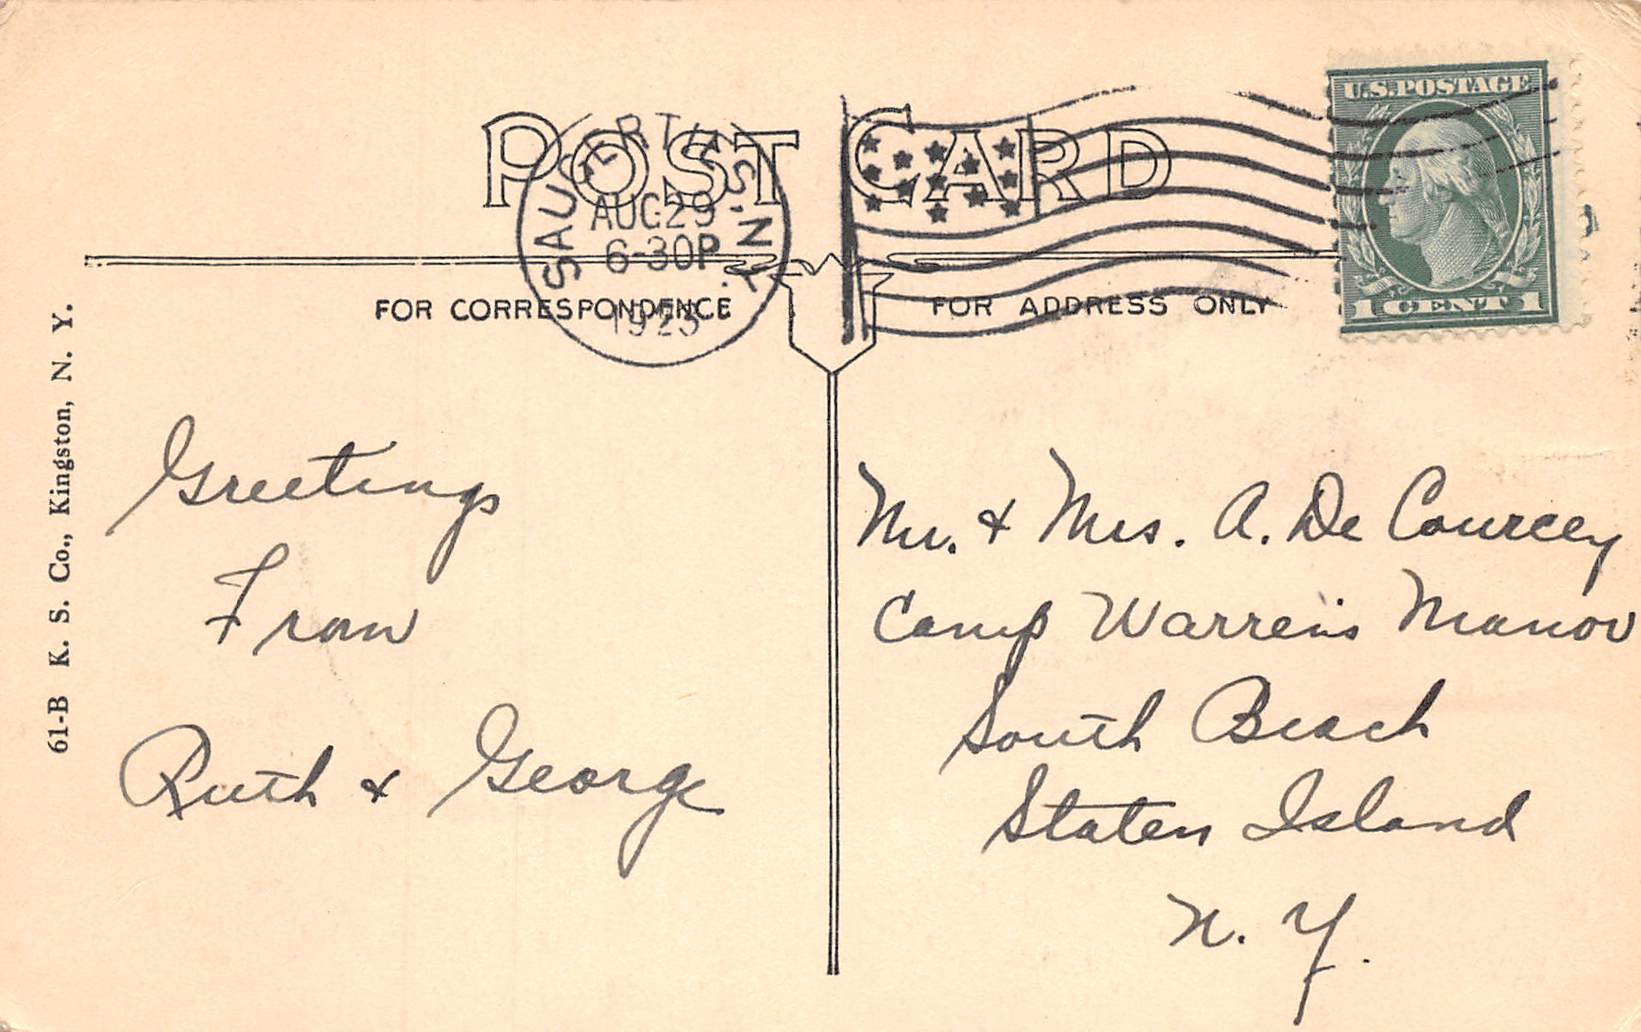 POST CARD
SAUGERTIES, N.Y.
AUG 29
6-30P
1923
U.S. POSTAGE
1 CENT 1
FOR CORRESPONDENCE
FOR ADDRESS ONLY
61-B K. S. Co., Kingston, N. Y.
Greetings
From
Ruth & George
Mr. & Mrs. A. De Courcey
Camp Warren's Manor
South Beach
Staten Island
N. Y.